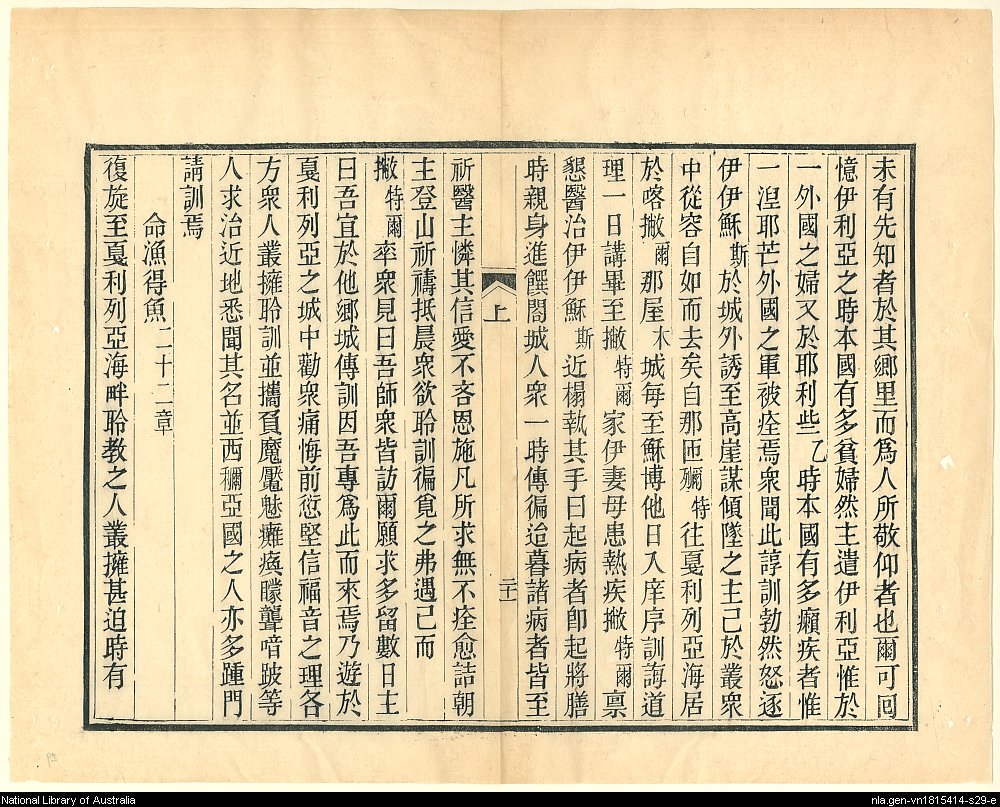 未有先知者於其鄉里而爲人所敬仰者也爾可回
憶伊利亞之時本國有多貧婦然主遣伊利亞惟於
一外國之婦又於耶利些乙時本國有多癩疾者惟
一湼耶芒外國之軍被痊焉衆聞此諄訓勃然怒逐
伊伊穌斯於城外誘至高崖謀傾墜之主己於叢衆
中從容自如而去矣自那匝彌特往戛利列亞海居
於喀撇爾那屋木城每至穌博他日入庠序訓誨道
理一日講畢至撇特爾家伊妻母患熱疾撇特爾禀
懇醫治伊伊穌斯近榻執其手曰起病者卽起將膳
時親身進饌閤城人衆一時傳徧迨暮諸病者皆至
上 二十一
祈醫主憐其信愛不吝恩施凡所求無不痊愈詰朝
主登山祈禱抵晨衆欲聆訓徧覓之弗遇己而
撇特爾率衆見曰吾師衆皆訪爾願求多留數日主
曰吾宜於他鄉城傳訓因吾專爲此而來焉乃遊於
戛利列亞之城中勸衆痛悔前愆堅信福音之理各
方衆人叢擁聆訓並攜負魔魘魅癱瘓矇聾喑跛等
人求治近地悉聞其名並西彌亞國之人亦多踵門
請訓焉
命漁得魚二十二章
復旋至戛利列亞海畔聆教之人叢擁甚迫時有
National Library of Australia
nla.gen-vn1815414-s29-e